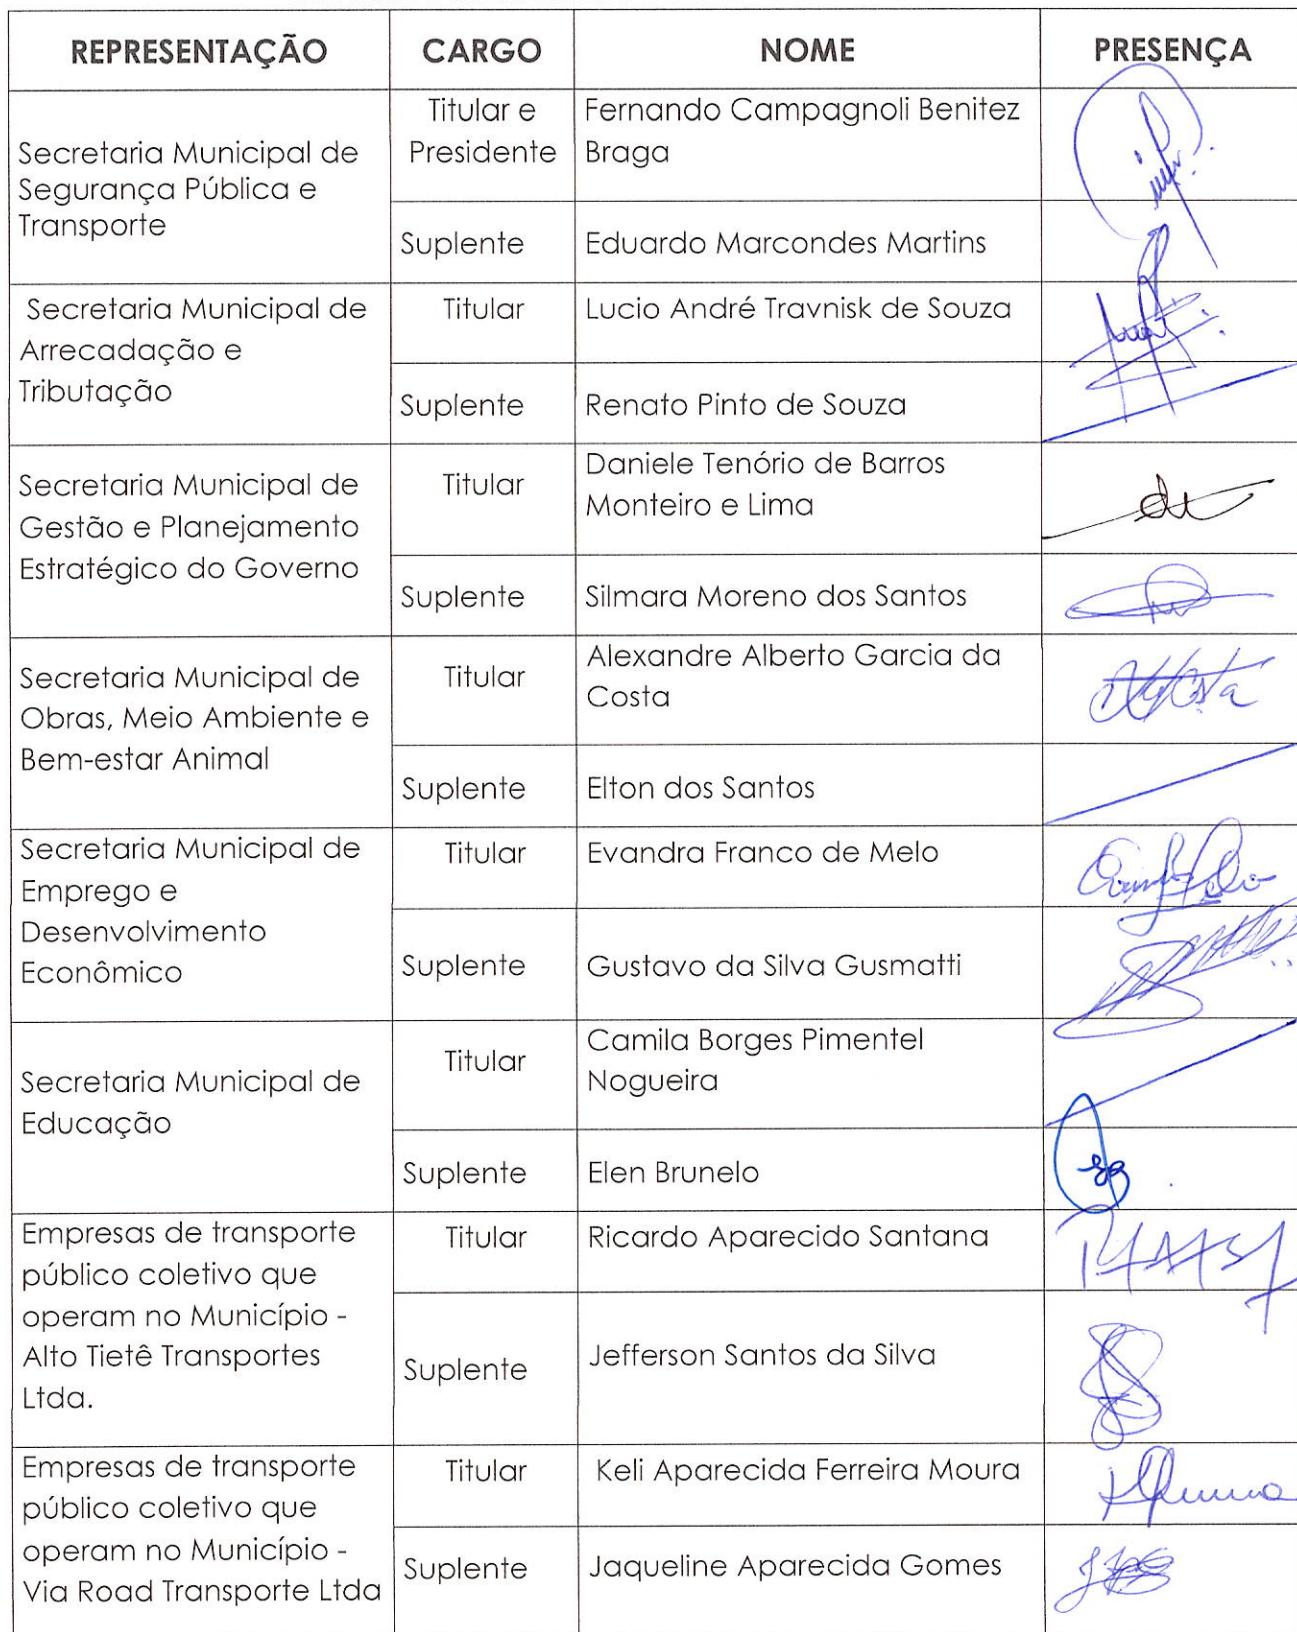 REPRESENTAÇÃO CARGO NOME PRESENÇA
Secretaria Municipal de
Segurança Pública e
Transporte
Titular e
Presidente
Fernando Campagnoli Benitez
Braga
Suplente
Eduardo Marcondes Martins
Secretaria Municipal de
Arrecadação e
Tributação
Titular
Lucio André Travnisk de Souza
Suplente
Renato Pinto de Souza
Secretaria Municipal de
Gestão e Planejamento
Estratégico do Governo
Titular
Daniele Tenório de Barros
Monteiro e Lima
Suplente
Silmara Moreno dos Santos
Secretaria Municipal de
Obras, Meio Ambiente e
Bem-estar Animal
Titular
Alexandre Alberto Garcia da
Costa
Suplente
Elton dos Santos
Secretaria Municipal de
Emprego e
Desenvolvimento
Econômico
Titular
Evandra Franco de Melo
Suplente
Gustavo da Silva Gusmatti
Secretaria Municipal de
Educação
Titular
Camila Borges Pimentel
Nogueira
Suplente
Elen Brunelo
Empresas de transporte
público coletivo que
operam no Município -
Alto Tietê Transportes
Ltda.
Titular
Ricardo Aparecido Santana
Suplente
Jefferson Santos da Silva
Empresas de transporte
público coletivo que
operam no Município -
Via Road Transporte Ltda
Titular
Keli Aparecida Ferreira Moura
Suplente
Jaqueline Aparecida Gomes